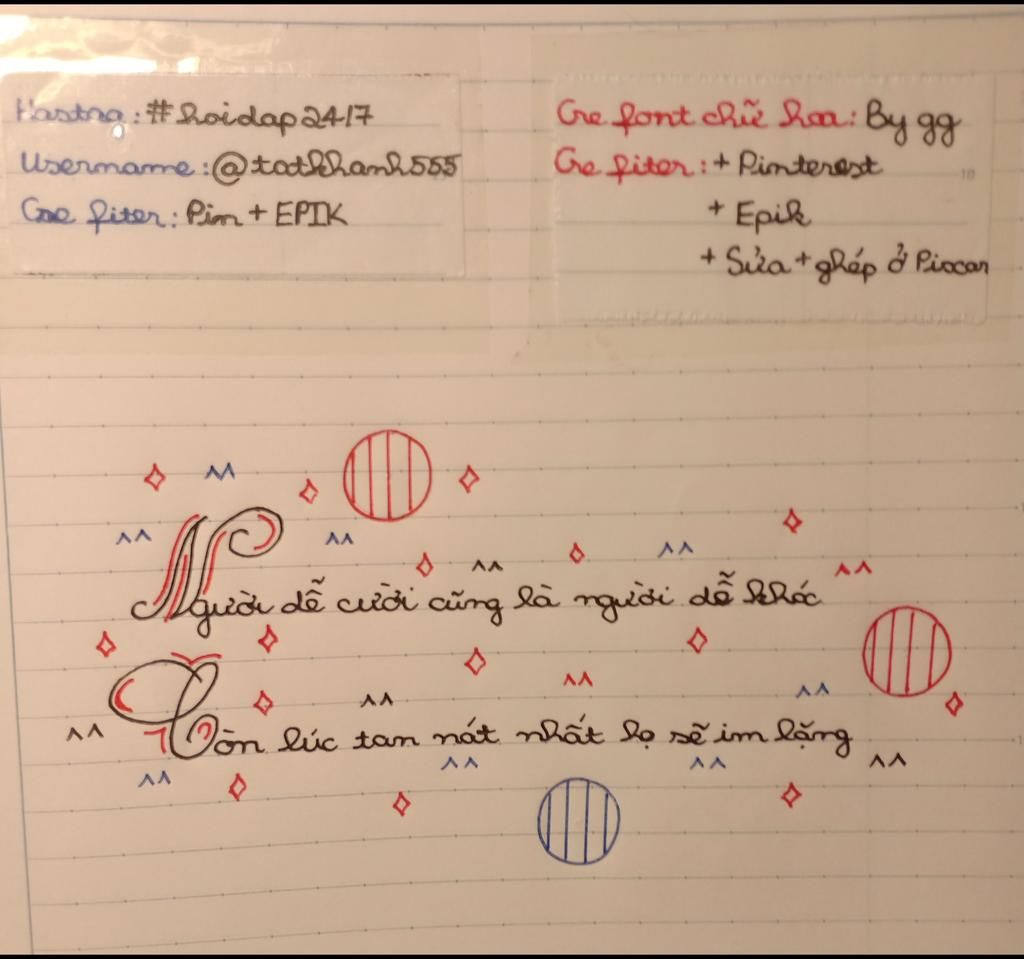 Hastna: #hoidap247
Username: @tatkhanh555
Cre fiter: Pin + EPIK
Cre font chữ hoa: By gg
Cre fiter: + Pinterest
+ Epik
+ Sửa + ghép ở Piscar
Người dễ cười cũng là người dễ khóc
Còn lúc tan nát nhất họ sẽ im lặng